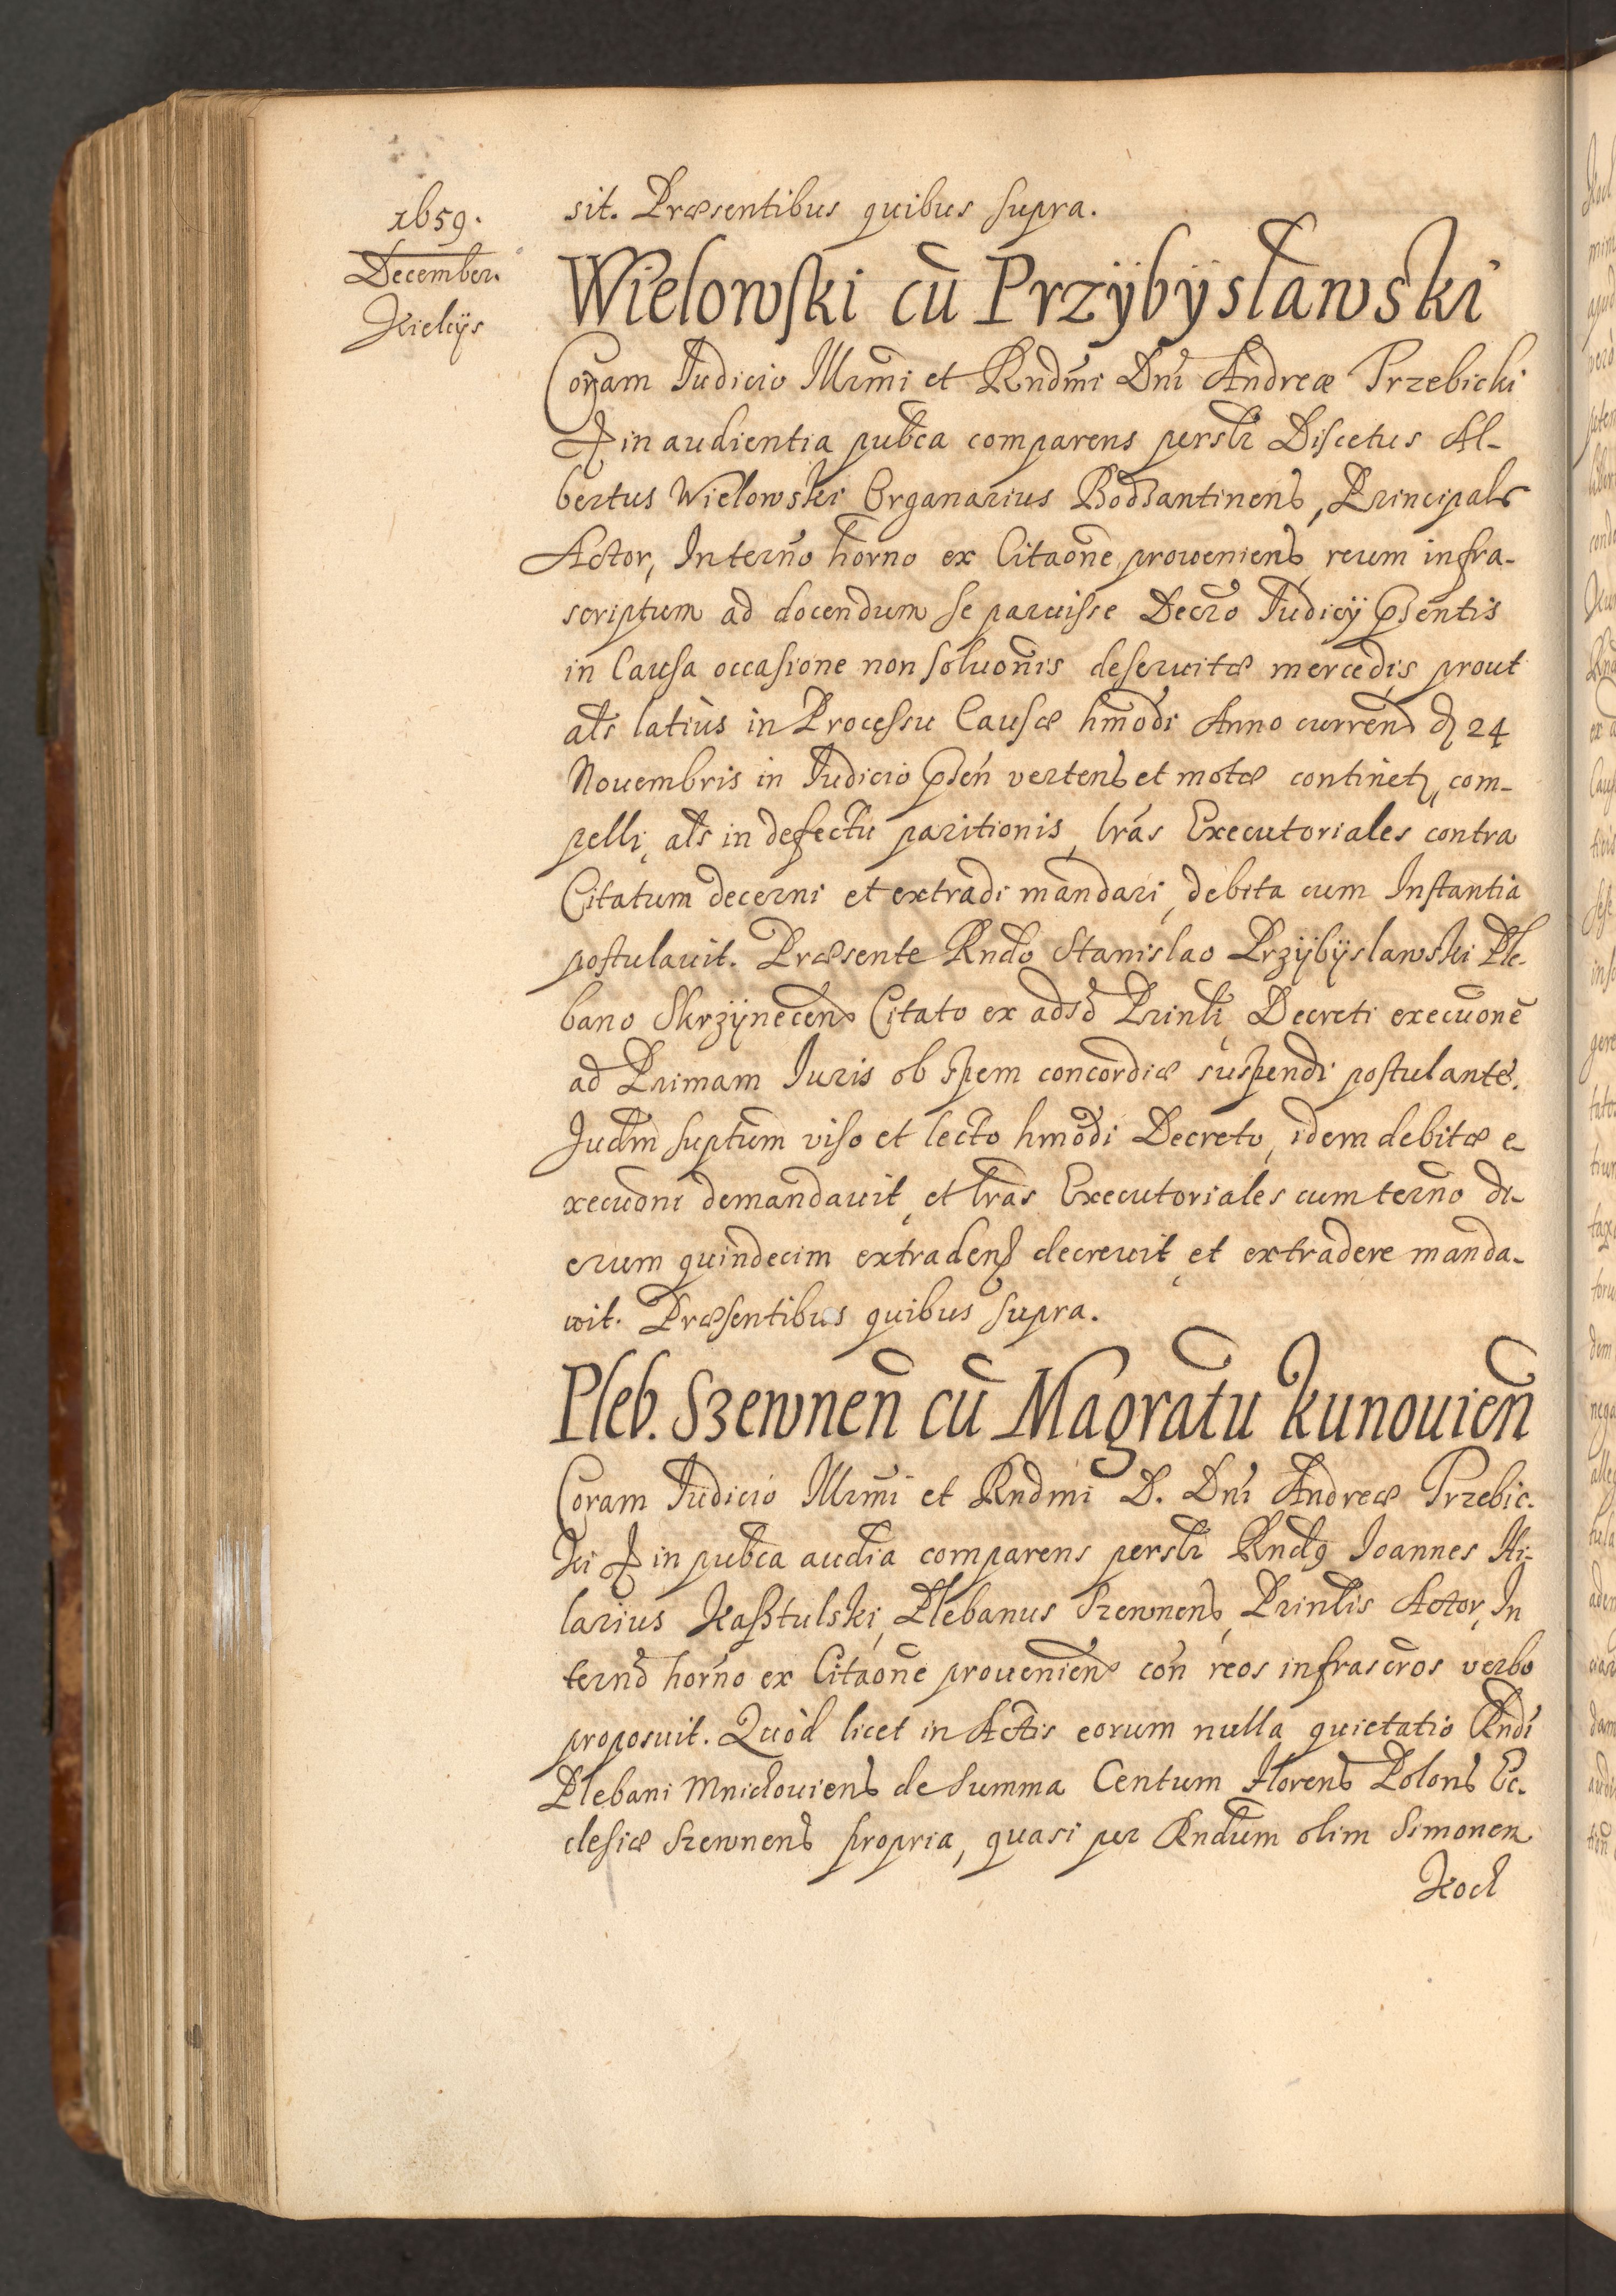 1659.
December.
Kielcijs
sit. Præsentibus quibus supra.
Wielowski cū Przÿbÿsławski
Coram Iudicio Illrmi et Rndmi Dni Andreæ Trzebicki
in audientia pubca comparens persłr Discetus Al-
bertus Wielowski Organarius Bodzantinens, Principals
Actor, In terno horno ex Citaone proveniens reum infra-
scriptum ad docendum se paruisse Decro Iudicij psentis
in Causa occasione non soluonis deseruitæ mercedis prout
als latius in Processu Causæ hmodi Anno currens d 24
Nouembris in Iudicio psen vertens et motæ continet, com-
pelli, als in defectu paritionis, lras Executoriales contra
Citatum decerni et extradi mandari, debita cum Instantia
postulauit. Præsente Rndo Stanislao Przÿbÿslawski Ple-
bano Skrzÿnecens Citato ex adso Prinli Decreti execuone
ad Primam Iuris ob spem concordiæ suspendi postulante.
Iudm suptum viso et lecto hmodi Decreto, idem debitæ e-
xecuoni demandauit, et lras Executoriales cum terno di-
erum quindecim extradens decreuit et extradere manda-
uit. Præsentibus quibus supra.
Pleb. Szewnen cū Magratu Kunouien
Coram Iudicio Illrmi et Rndmi D. Dni Andreæ Trzebic-
ki in pubca audia comparens persłr Rndg Ioannes Hi-
larius Kasztulski, Plebanus Szewnens, Prinlis Actor, In
terno horno ex Citaone proueniens con reos infrascros verbo
proposuit. Quòd licet in Actis eorum nulla quietatio Rndi
Plebani Mnichouiens de Summa Centum Florens Polons Ec-
clesiæ Szewnens propria, quasi per Rndum olim Simonem
Koch